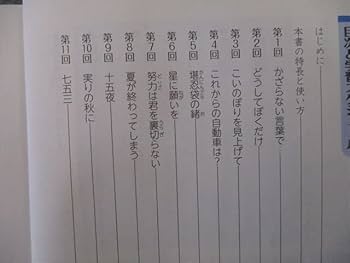 はじめに
本書の特長と使い方
第1回 かざらない言葉で
第2回 どうしてぼくだけ
第3回 こいのぼりを見上げて
第4回 これからの自動車は?
第5回 堪忍袋の緒
第6回 星に願いを
第7回 努力は君を裏切らない
第8回 夏が終わってしまう
第9回 十五夜
第10回 実りの秋に
第11回 七五三